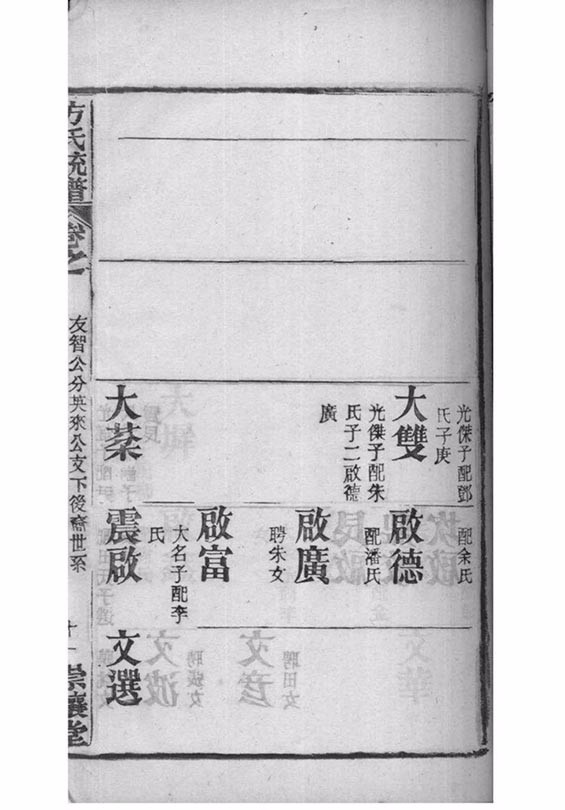 光傑子配鄧
氏子庚
大雙
光傑子配朱
氏子二啟德
廣
大棻
配余氏
啟德
配潘氏
啟廣
聘朱女
啟富
大名子配李
氏
震啟
文選
方氏統譜
卷之
友智公分英來公支下後裔世系
十一
崇讓堂